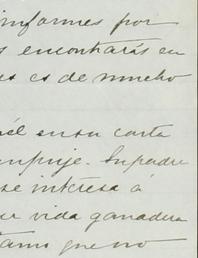 informes por
encontrarás en
es de mucho
él en su carta
empuje. Su padre
se interesa á
vida ganadera
que no